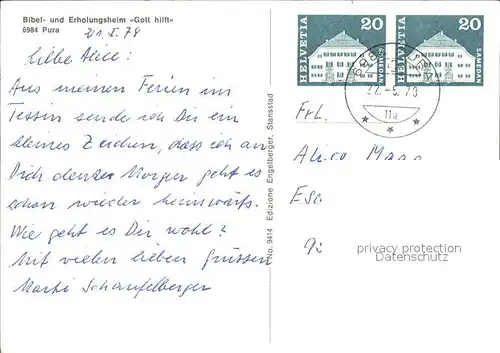 Bibel- und Erholungsheim «Gott hilft»
6984 Pura
21.5.78
Liebe Alice:
Aus meinen Ferien im
Tessin sende ich Dir ein
kleines Zeichen, dass ich an
Dich denke. Morgen geht es
schon wieder heimwärts.
Wie geht es Dir wohl?
Mit vielen lieben Grüssen
Marti Schaufelberger
No. 9414 Edizione Engelberger, Stansstad
HELVETIA 20 SAMEDAN
HELVETIA 20 SAMEDAN
698
22.-5.78
11a
Frl.
Alice
privacy protection
Datenschutz